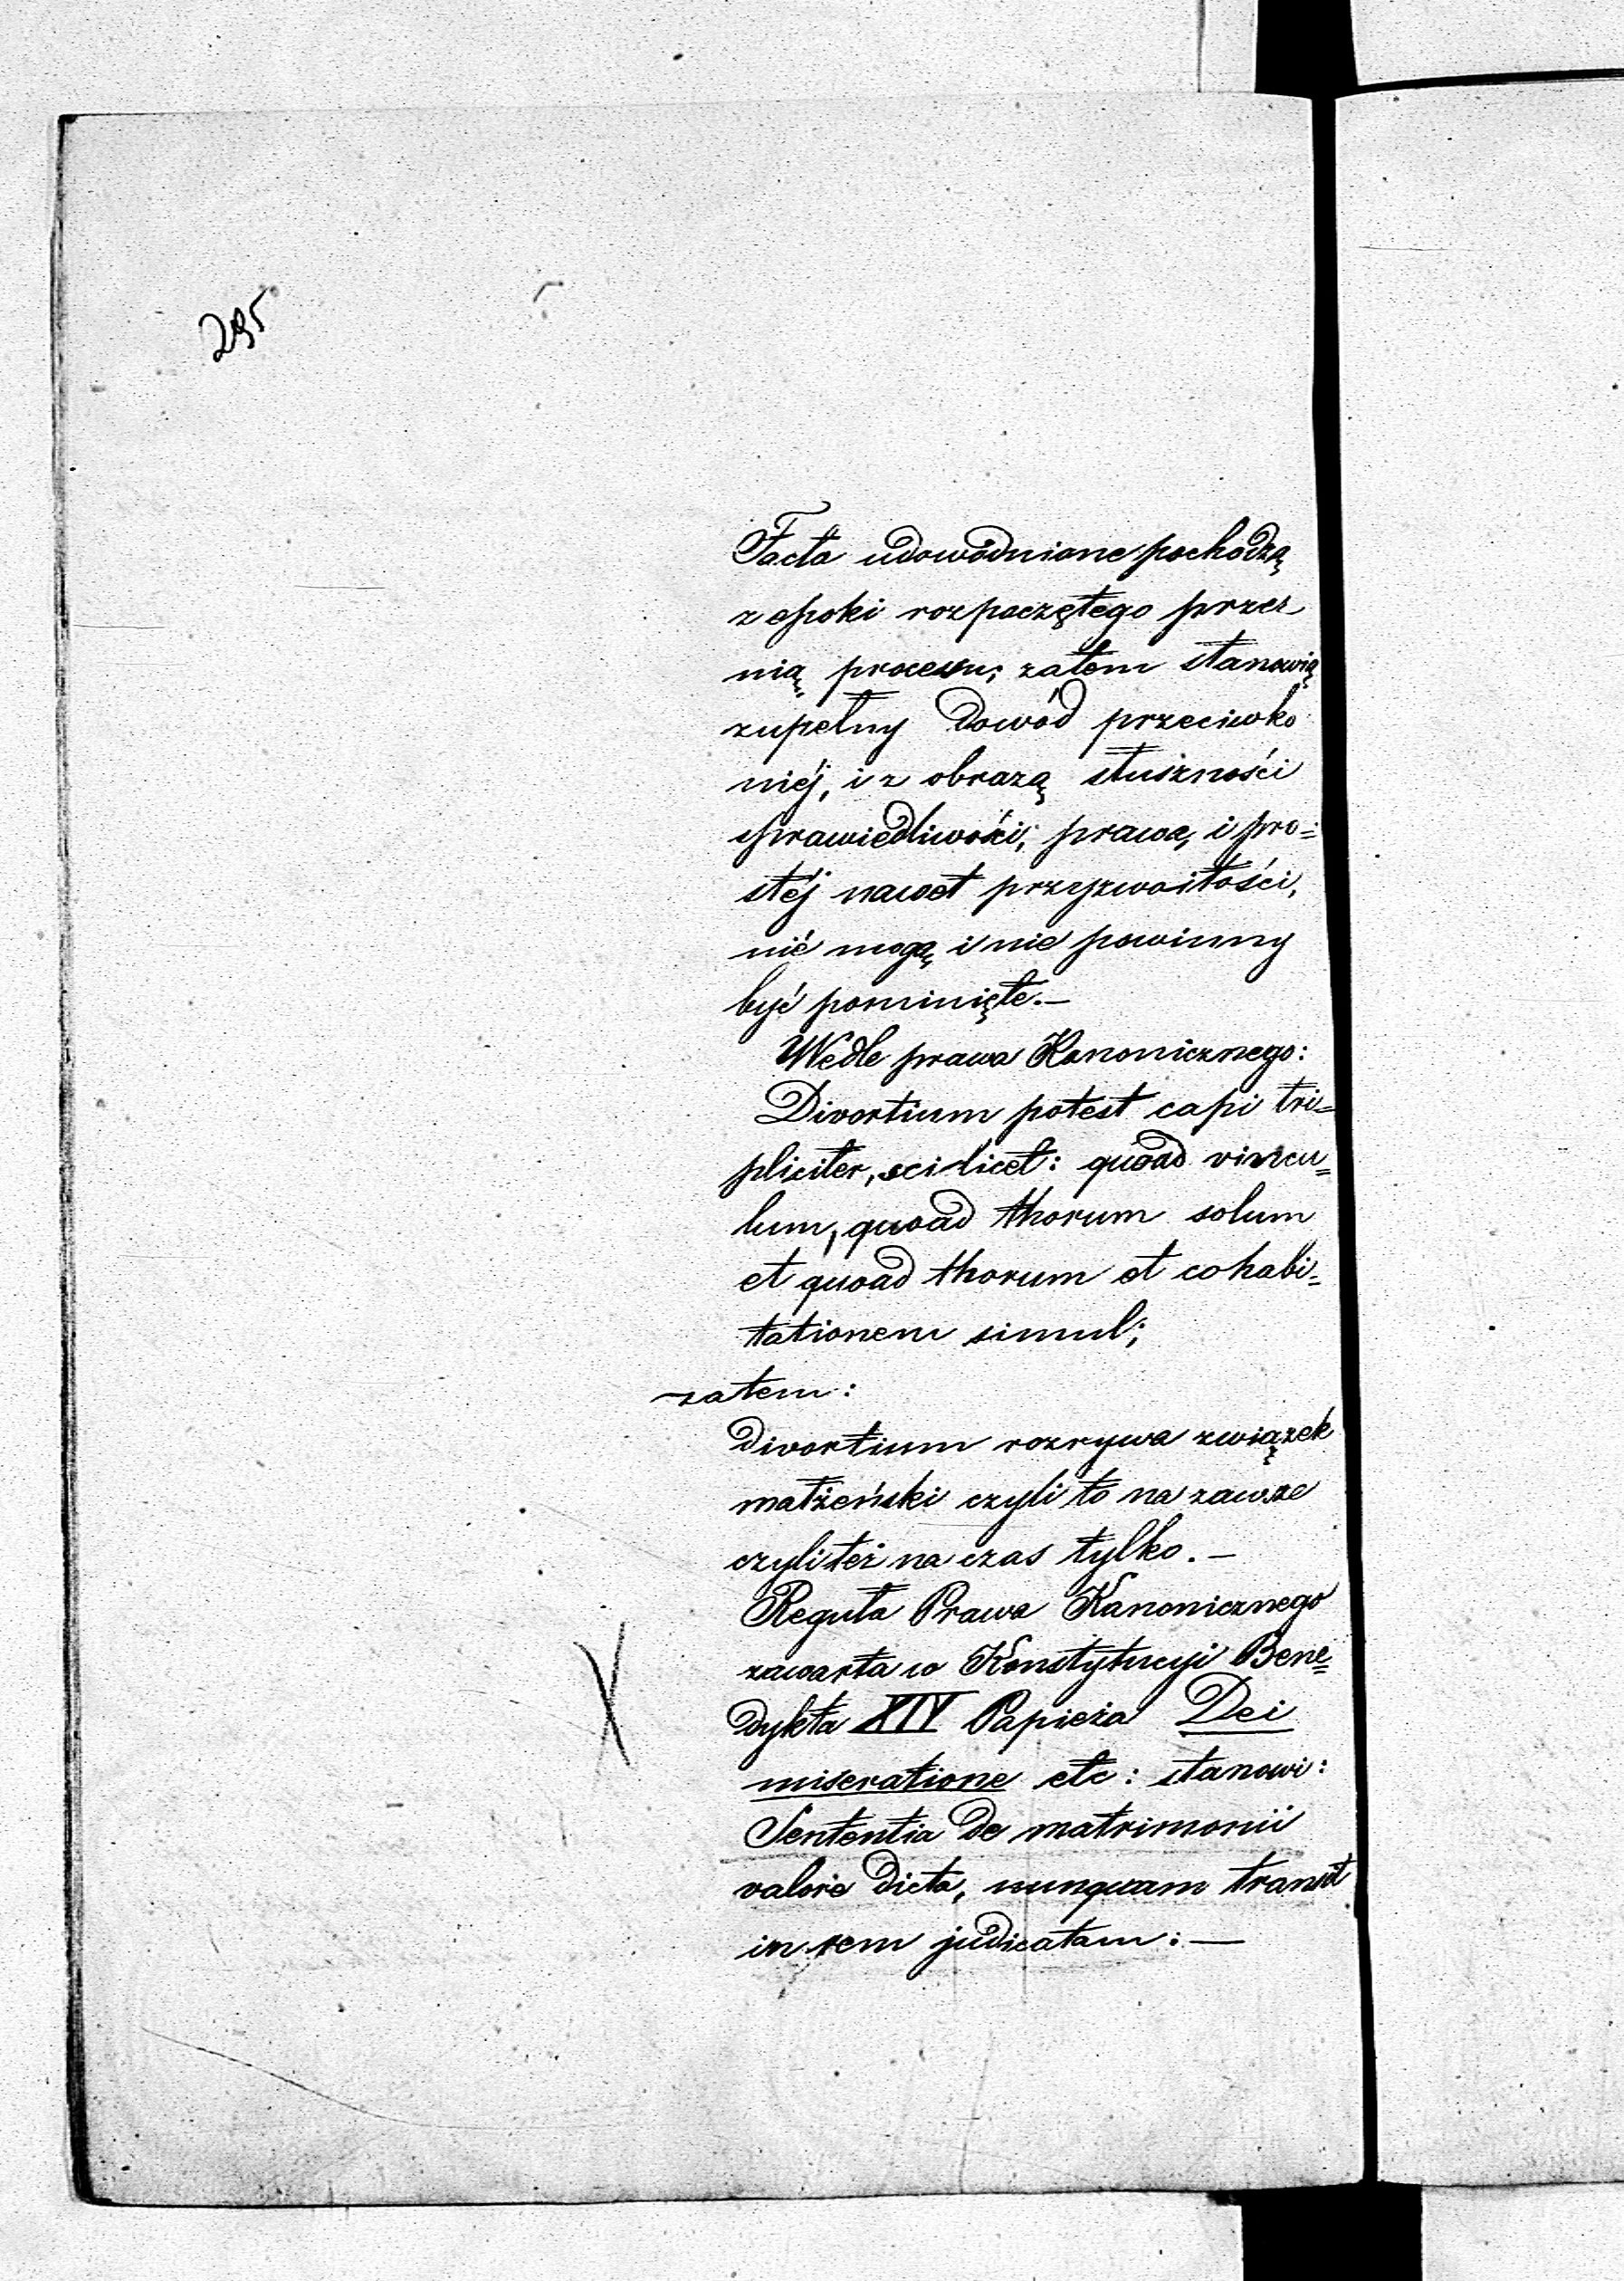 295
Facta udowódnione pochodzą
z epoki rozpoczętego przez
nią procesu; zatem stanowią
zupełny dowód przeciwko
niéj, i z obrazą słuszności
sprawiedliwości; prawa, i pro=
stéj nawet przyzwoitości,
nie mogą i nie powinny
być pominięte.—
Wedle prawa Kanonicznego:
Divortium potest capi tri=
pliciter, scilicet: quoad vincu=
lum, quoad thorum solum
et quoad thorum et cohabi=
tationem simul;
zatem:
divortium rozrywa związek
małżeński czyli to na zawsze
czyli też na czas tylko.—
Reguła Prawa Kanonicznego
zawarta w Konstytucyi Bene=
dykta XIV Papieża Dei
miseratione etc: stanowi:
Sententia de matrimonii
valore dicta, nunquam transit
in rem judicatam:—